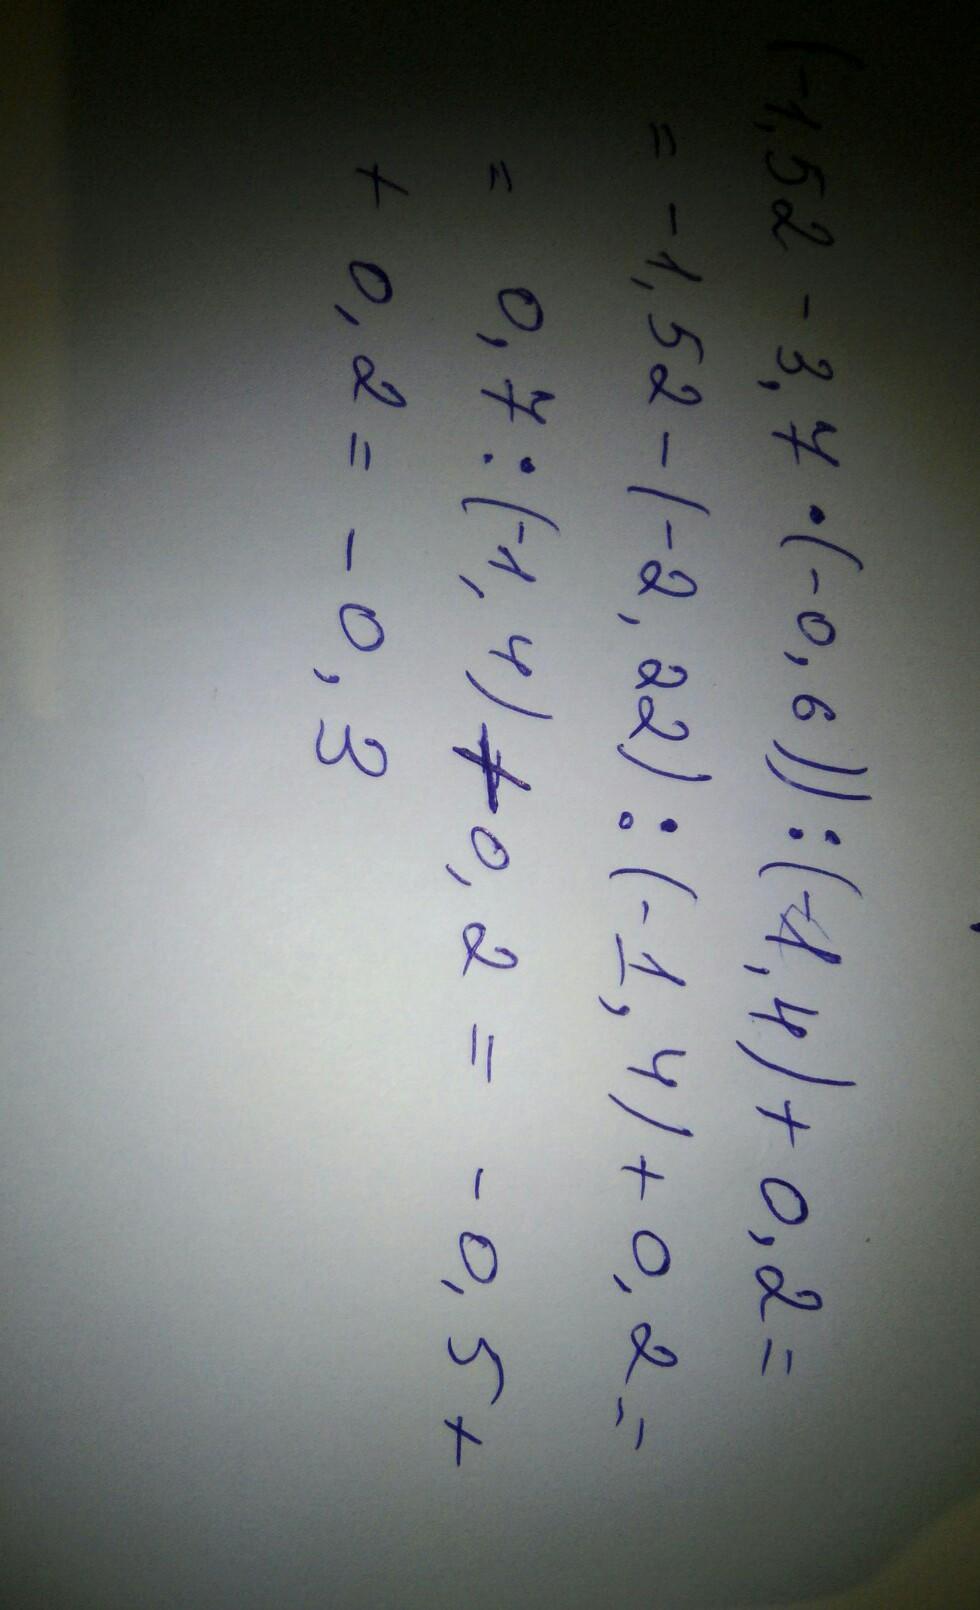 (-1,52 - 3,7 · (-0,6)) : (-1,4) + 0,2 =
= -1,52 - (-2,22) : (-1,4) + 0,2 =
= 0,7 : (-1,4) + 0,2 = -0,5 +
+ 0,2 = -0,3